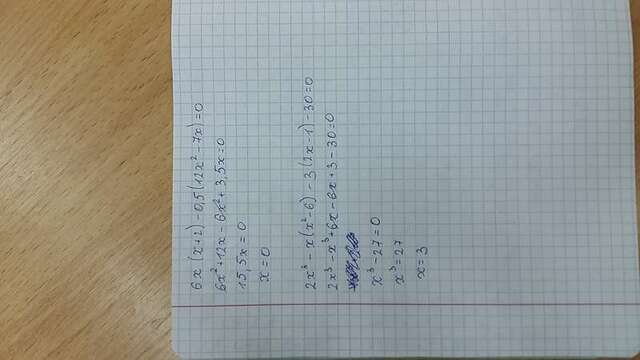 6x (x+2) -0,5(12x² -7x)=0
6x²+12x - 6x²+ 3,5x=0
15,5x = 0
x=0
2x³ - x(x²-6) - 3(2x-1) -30=0
2x³ -x³+6x -6x +3 -30=0
x³-27=0
x³=27
x=3